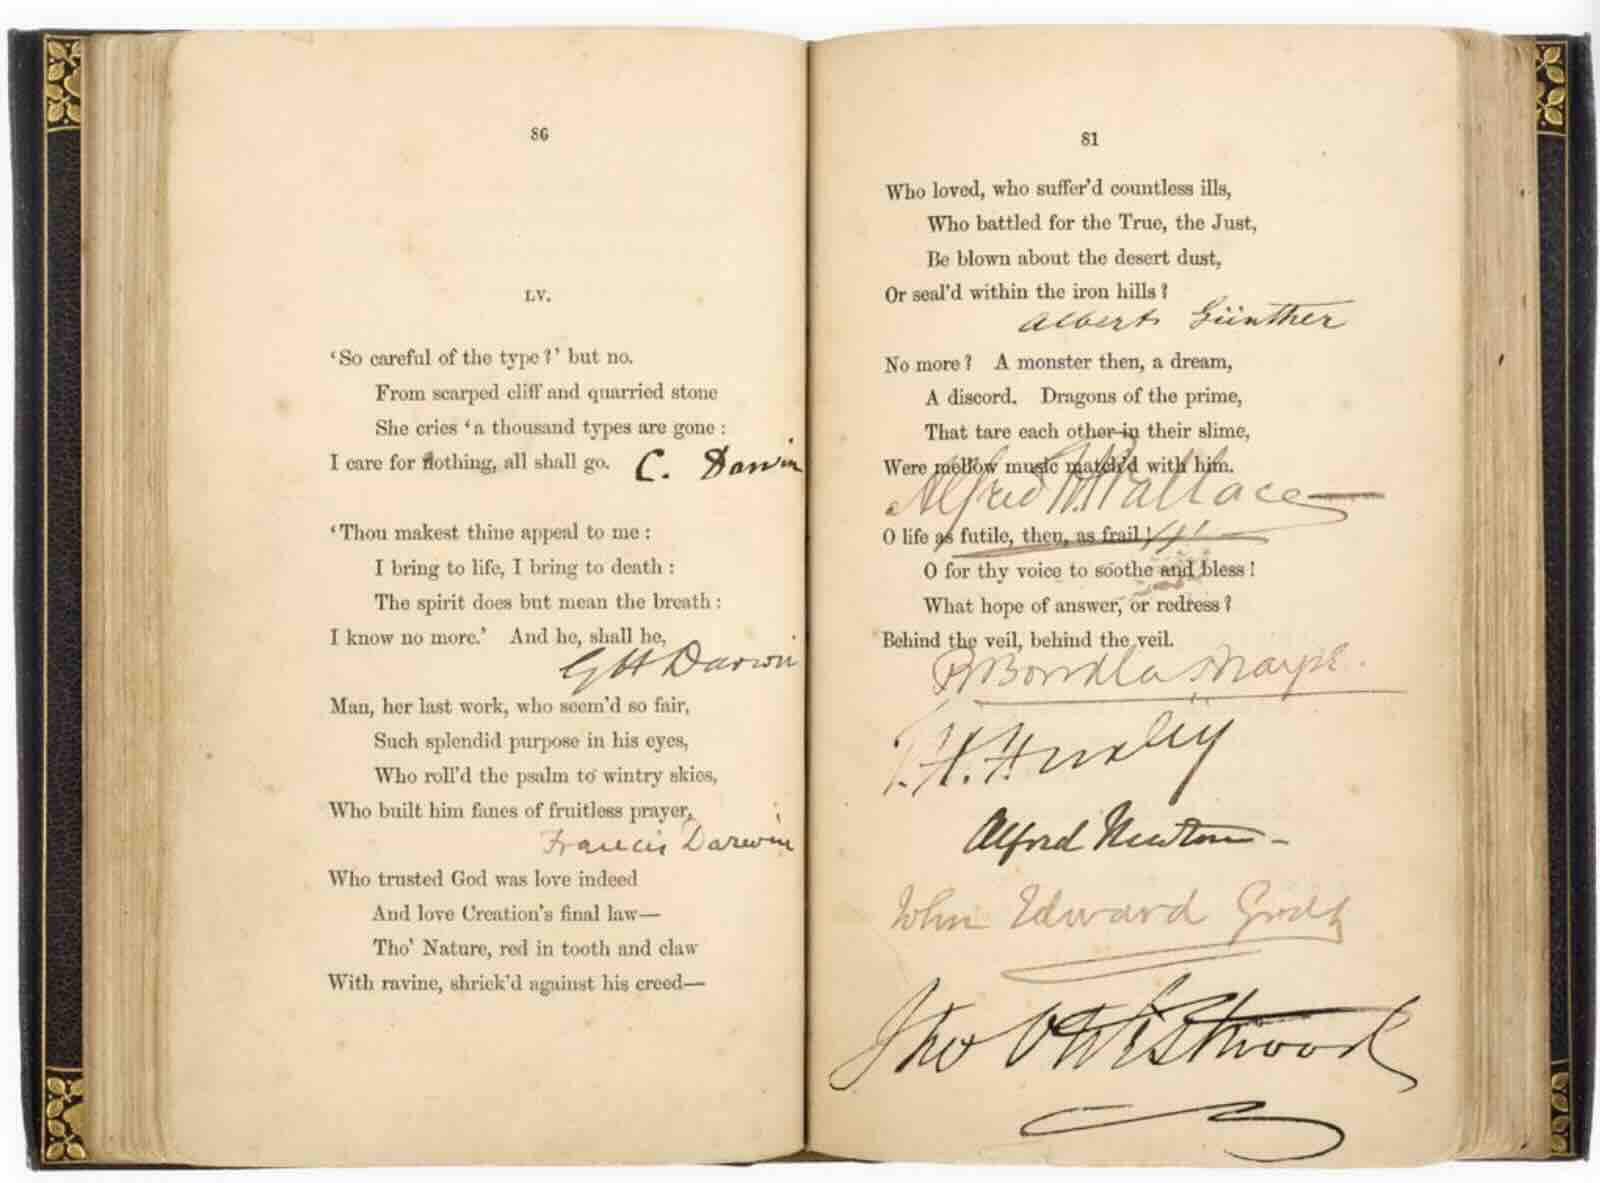 86
LV.
‘So careful of the type?’ but no.
From scarped cliff and quarried stone
She cries ‘a thousand types are gone:
I care for nothing, all shall go.
C. Darwin
‘Thou makest thine appeal to me:
I bring to life, I bring to death:
The spirit does but mean the breath:
I know no more.’ And he, shall he,
G H Darwin
Man, her last work, who seem’d so fair,
Such splendid purpose in his eyes,
Who roll’d the psalm to wintry skies,
Who built him fanes of fruitless prayer,
Francis Darwin
Who trusted God was love indeed
And love Creation’s final law—
Tho’ Nature, red in tooth and claw
With ravine, shriek’d against his creed—
81
Who loved, who suffer’d countless ills,
Who battled for the True, the Just,
Be blown about the desert dust,
Or seal’d within the iron hills?
Albert Günther
No more? A monster then, a dream,
A discord. Dragons of the prime,
That tare each other in their slime,
Were mellow music match’d with him.
Alfred R. Wallace
O life as futile, then, as frail!
O for thy voice to soothe and bless!
What hope of answer, or redress?
Behind the veil, behind the veil.
R Bowdler Sharpe.
T. H. Huxley
Alfred Newton
John Edward Gray
Jno O Westwood